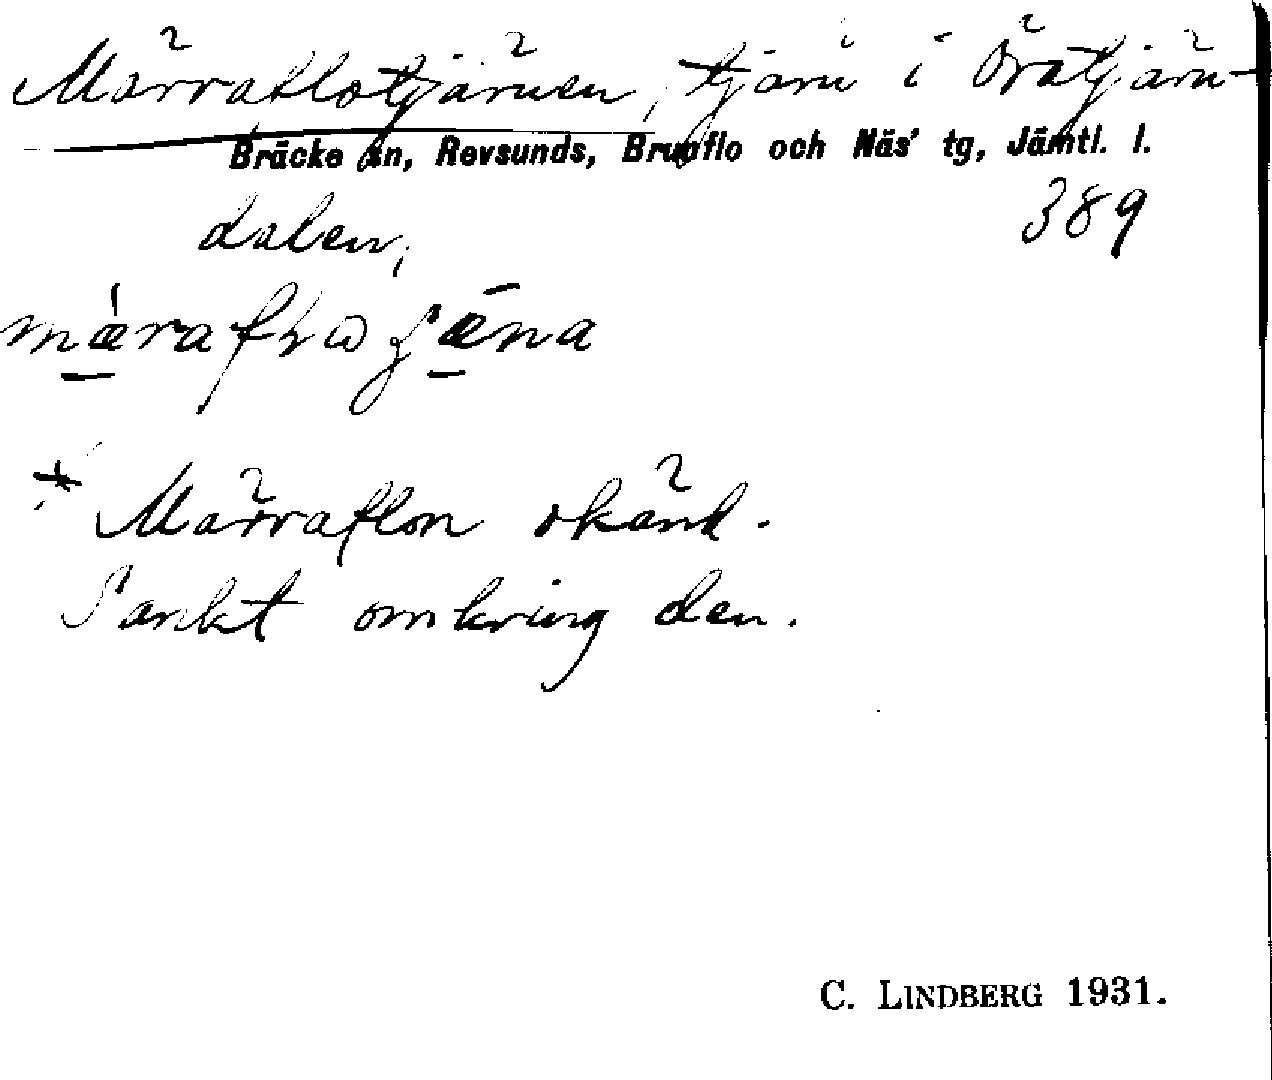 Märraflotjärnen, tjärn i Öratjärn-
Bräcke sn, Revsunds, Brunflo och Näs' tg, Jämtl. l.
dalen,
389
* Märraflon okänd.
Sankt omkring den.
C. LINDBERG 1931.